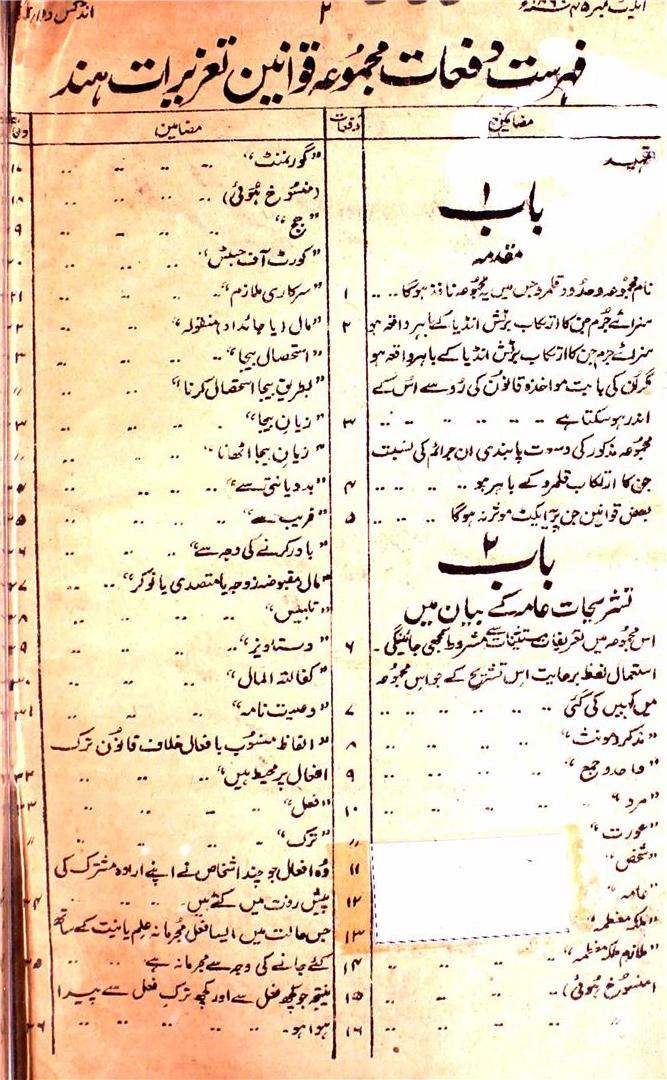 ایکٹ نمبر ۴۵
۲
انڈکس
فہرست دفعات مجموعہ قوانین تعزیرات ہند
مضامین
دفعات
تمہید
باب ۱
مقدمہ
نام مجموعہ و حدود قلمرو جس میں یہ مجموعہ نافذ ہوگا .. .. ۱
سزائے جرم جن کا ارتکاب برٹش انڈیا کے باہر واقعہ ہو ۲
سزائے جرم جن کا ارتکاب برٹش انڈیا کے باہر واقعہ ہو
مگر ان کی بابت مواخذہ قانون کی رُو سے اس کے
اندر ہو سکتا ہے .. .. .. .. ۳
مجموعہ مذکور کی وسعت پابندی ان جرائم کی نسبت
جن کا ارتکاب قلمرو کے باہر ہو .. .. .. ۴
بعض قوانین جن پر یہ ایکٹ موثر نہ ہوگا .. .. ۵
باب ۲
تشریحات عامہ کے بیان میں
اس مجموعہ میں تعریفات مستثنیات سے مشروط سمجھی جائینگی۔ ۶
استعمال لفظ برعایت اس تشریح کے جو اس مجموعہ
میں کہیں کی گئی .. .. .. ۷
"مذکر و مونث" .. .. .. ۸
"واحد و جمع" .. .. .. ۹
"مرد" .. .. .. ۱۰
"عورت" .. .. .. 〃
"شخص" ۱۱
"عامہ" ۱۲
"ملکہ معظمہ" ۱۳
"ملازم ملکہ معظمہ" .. .. .. ۱۴
(منسوخ ہوئی) .. .. .. ۱۵
〃 .. .. .. ۱۶
مضامین
"گورنمنٹ" .. .. ..
(منسوخ ہوئی) .. .. .. ۱۸
"جج" .. .. ..
"کورٹ آف جسٹس" .. ..
"سرکاری ملازم" .. .. ۲۱
"مال یا جائداد منقولہ" .. .. ۲۲
"استحصال بیجا" .. ..
"بطریق بیجا استحصال کرنا" .. 〃
"زیان بیجا" .. ..
"زیان بیجا اٹھانا" .. .. 〃
"بد دیانتی سے" .. ..
"فریب سے" .. ..
"باور کرنے کی وجہ سے" .. .. ۲۶
"مال مقبوضہ زوجہ یا متصدی یا نوکر" .. ۲۷
"تلبیس" .. .. ..
"دستاویز" .. .. ۲۹
"کفالۃ المال" .. .. ۳۰
"وصیت نامہ" .. .. ۳۱
"الفاظ منسوب با فعال خلاف قانون ترک
افعال پر محیط ہیں" .. .. ۳۲
"فعل" .. .. ..
"ترک" .. .. .. 〃
وہ افعال جو چند اشخاص نے اپنے ارادہ مشترک کی
پیش رفت میں کئے ہیں۔ .. .. ۳۴
جس حالت میں ایسا فعل مجرمانہ علم یا نیت کے ساتھ
کئے جانے کی وجہ سے مجرمانہ ہے .. ۳۵
نتیجہ جو کچھ فعل سے اور کچھ ترک فعل سے پیدا
ہوا ہو۔ .. .. .. ۳۶